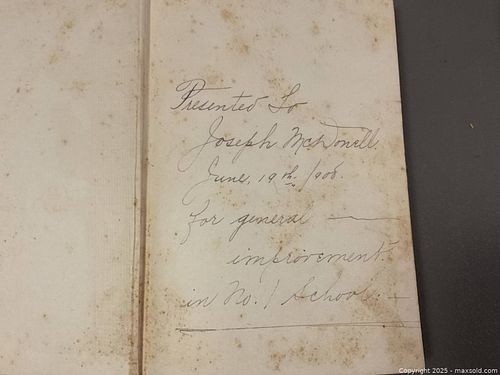 Presented To
Joseph McDonell.
June, 19th, 1908.
for general —
improvement.
in No. 1 School. —
Copyright © 2025 - maxsold.com